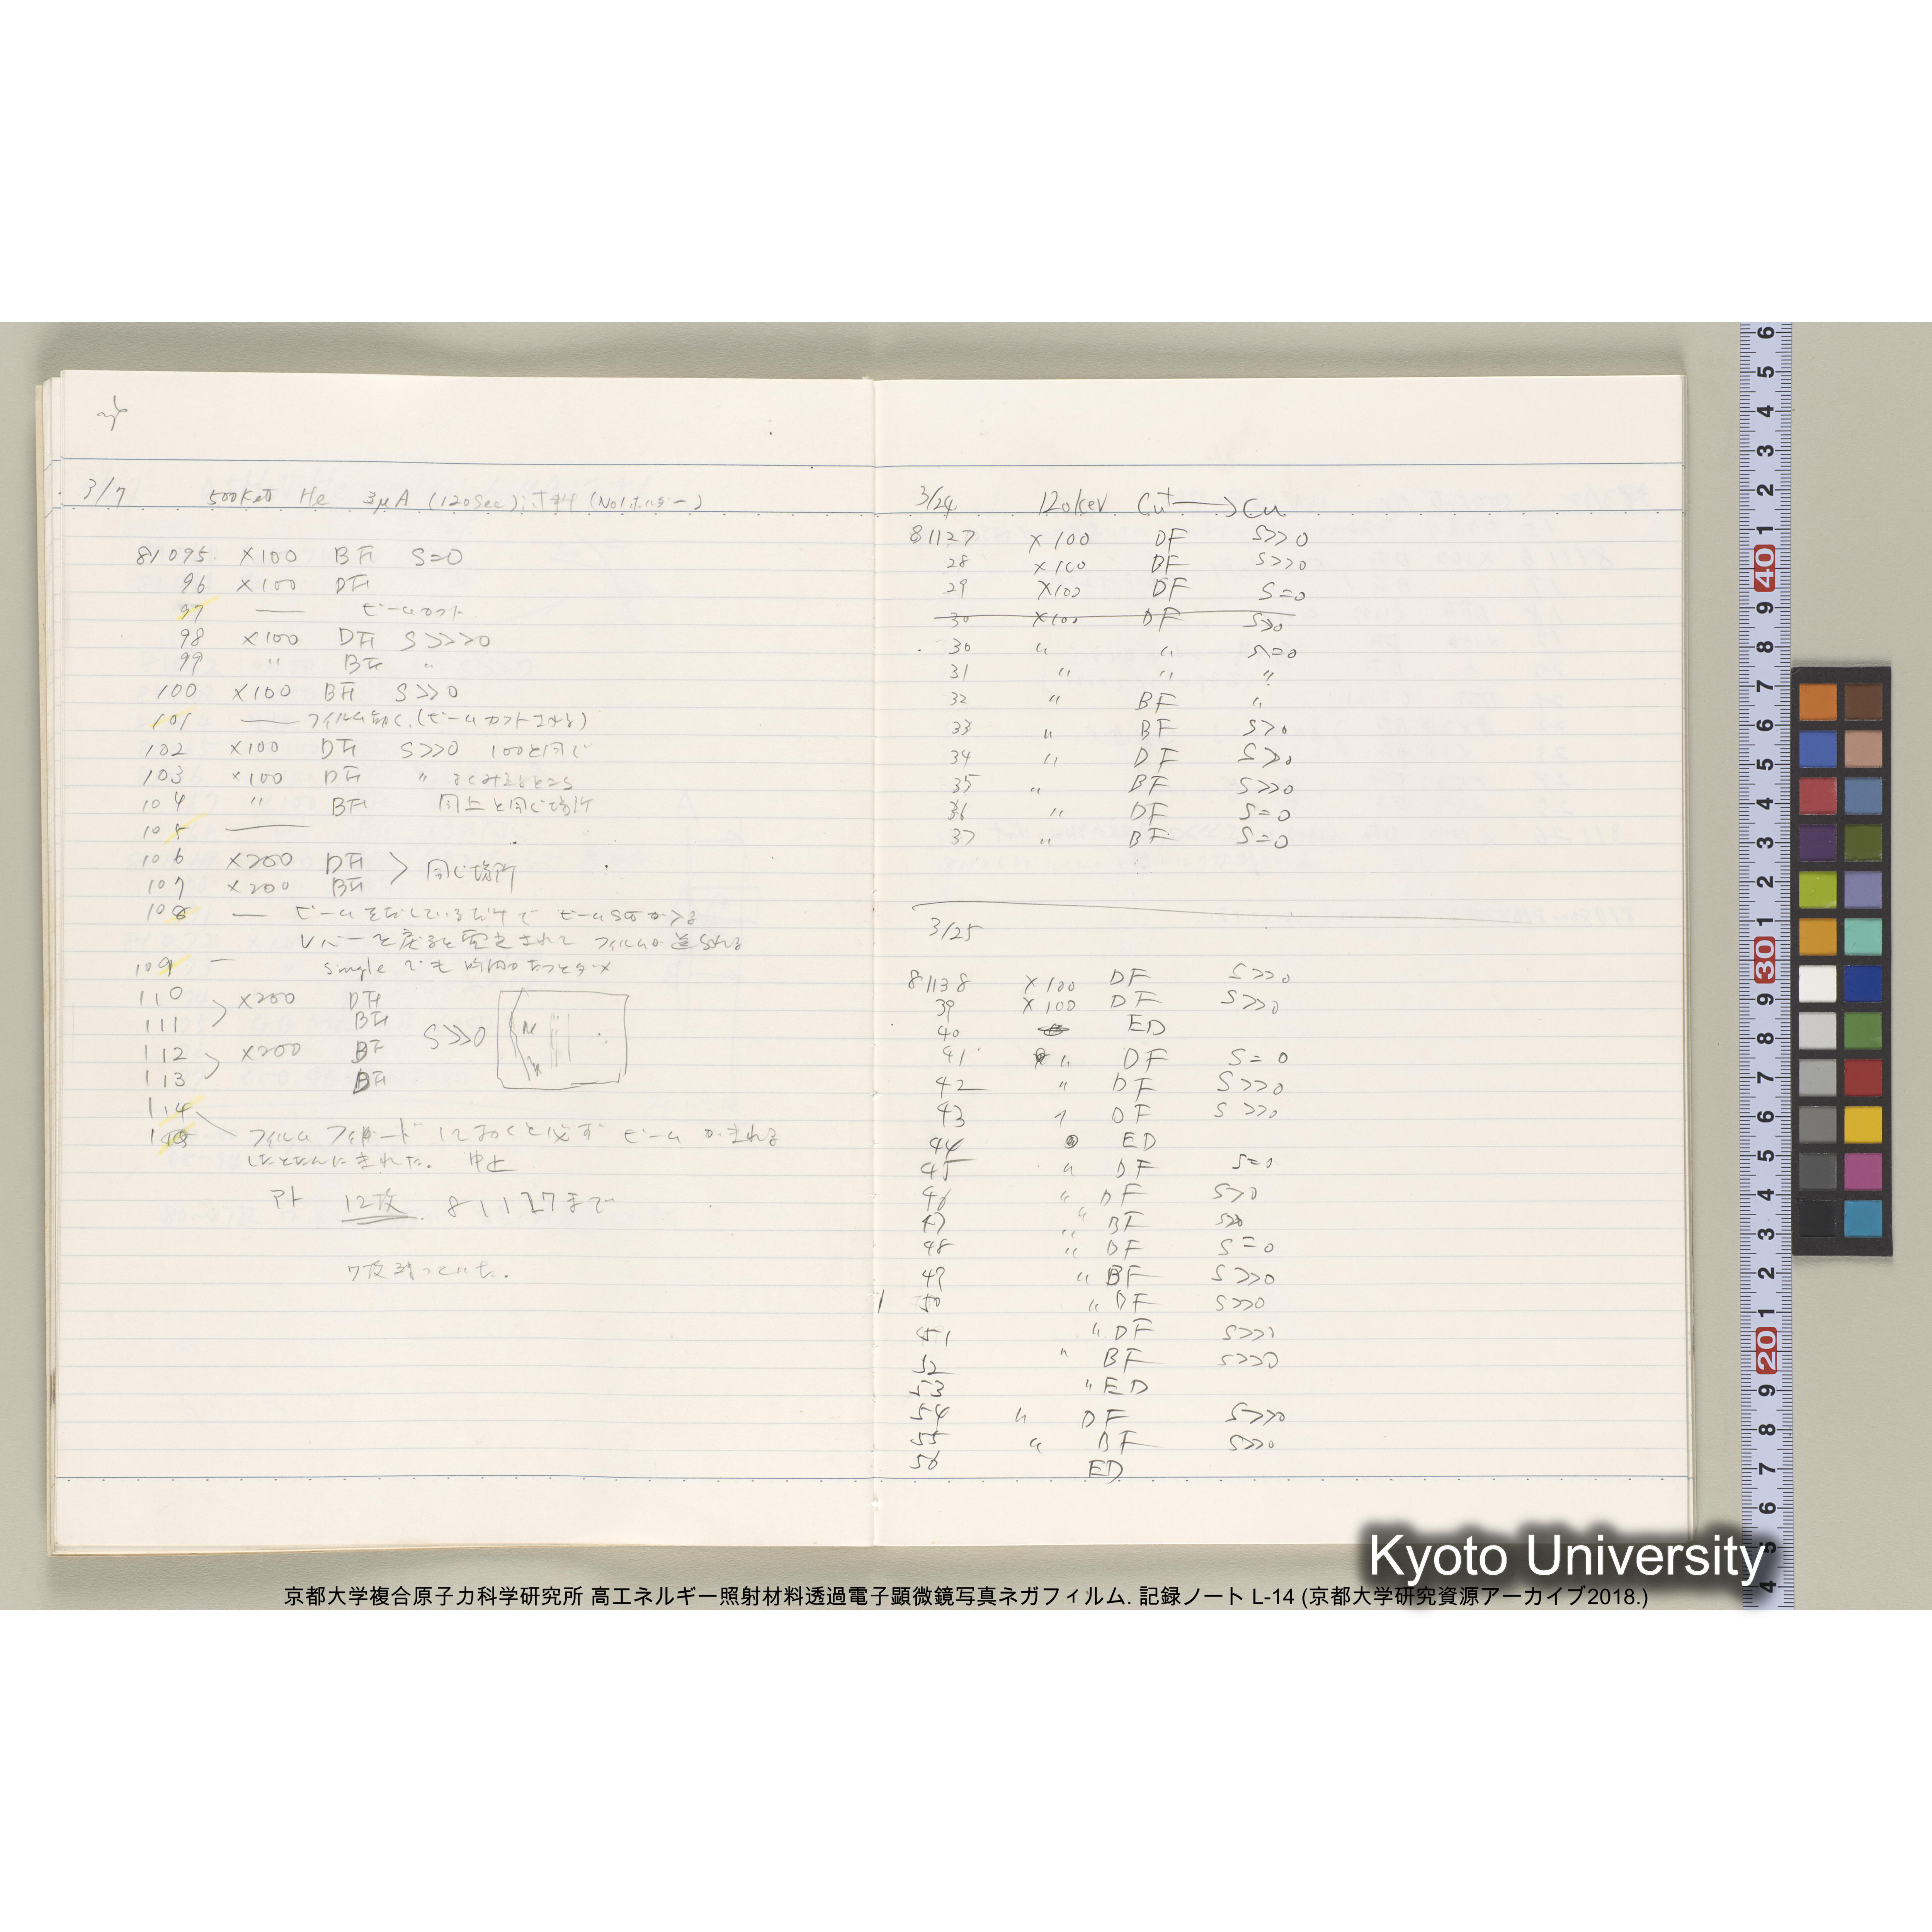 3/7 500KeV He 3μA (120Sec) (No1ホルダー)
81095. ×100 BF S=0
96 ×100 DF
97 — ビームカット
98 ×100 DF S>>>>0
99 〃 BF 〃
100 ×100 BF S>>0
101 — フィルム動く.(ビームカットされる)
102 ×100 DF S>>0 100と同じ
103 ×100 DF 〃
104 〃 BF 同上と同じ場所
105 —
106 ×200 DF
107 ×200 BF > 同じ場所
108 — ビーム
レバーを戻すと フィルムが送られる
109 — single でも 時間がたつとダメ
110 ×200 DF
111 BF
S>>0
112 ×200 BF
113 BF
114
フィルム しておくと必ず ビームが きれる
中止
アト 12枚. 81127まで
7枚残っていた.
3/24 120keV Cu+→Cu
81127 ×100 DF S>>>0
28 ×100 BF S>>>0
29 ×100 DF S=0
30 ×100 DF S>>0
30 〃 〃 S=0
31 〃 〃 〃
32 〃 BF 〃
33 〃 BF S>0
34 〃 DF S>>0
35 〃 BF S>>>0
36 〃 DF S=0
37 〃 BF S=0
3/25
81138 ×100 DF S>>>0
39 ×100 DF S>>>0
40 ED
41 〃 DF S=0
42 〃 DF S>>>0
43 〃 DF S>>>0
44 ED
45 〃 DF S=0
46 〃 DF S>0
47 〃 BF
48 〃 DF S=0
49 〃 BF S>>>0
50 〃 DF S>>>0
51 〃 DF S>>>
52 〃 BF S>>>0
53 〃 ED
54 〃 DF S>>>0
55 〃 BF S>>>0
56 ED
Kyoto University
京都大学複合原子力科学研究所 高エネルギー照射材料透過電子顕微鏡写真ネガフィルム. 記録ノート L-14 (京都大学研究資源アーカイブ2018.)
6 5 4 3 2 1 40 9 8 7 6 5 4 3 2 1 30 9 8 7 6 5 4 3 2 1 20 9 8 7 6 5 4